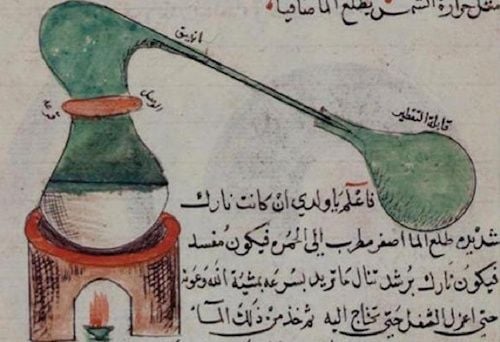 حرارة الشمس يطلع الما صافيا
انبيق
الوصل
قرعه
قابلة التقطير
فاعلم يا ولدي ان كانت نارك
شديده طلع الما اصفر مطرب إلى الحمره فيكون مفسد
فيكون نارك برشد تنال ما تريد بسرعه بمشيئة الله وعونه
حتى اعزل الثفل حتى يحتاج اليه ثم خذ من ذلك الماء